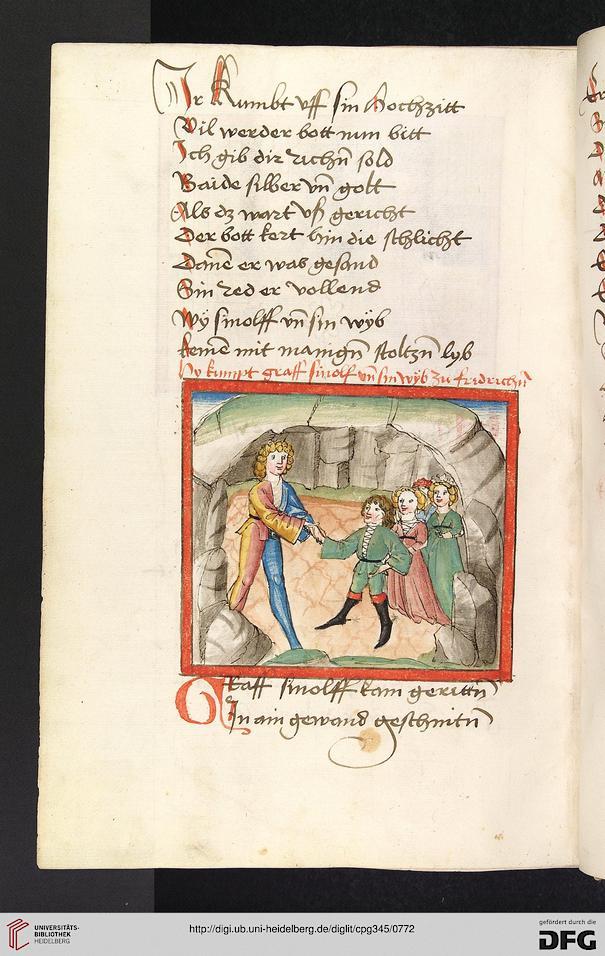 Ir kumbt vff sin hochzitt
Vil werder bott nun bitt
Ich gib dir richn̄ sold
Baide silber vn̄ golt
Als dz wart vß gericht
Der bott kert hin die schlicht
Danē er was gesand
Sin red er vollend
Wÿ sinolff vn̄ sin wÿb
kemē mit mangn̄ stoltzn̄ lyb
Hy kumpt graff sinolf vn̄ sin wÿb zu fridrichn̄
Graff sinolff kam gerittn̄
In ain gewand geschnitn̄
UNIVERSITÄTS-
BIBLIOTHEK
HEIDELBERG
http://digi.ub.uni-heidelberg.de/diglit/cpg345/0772
gefördert durch die
DFG